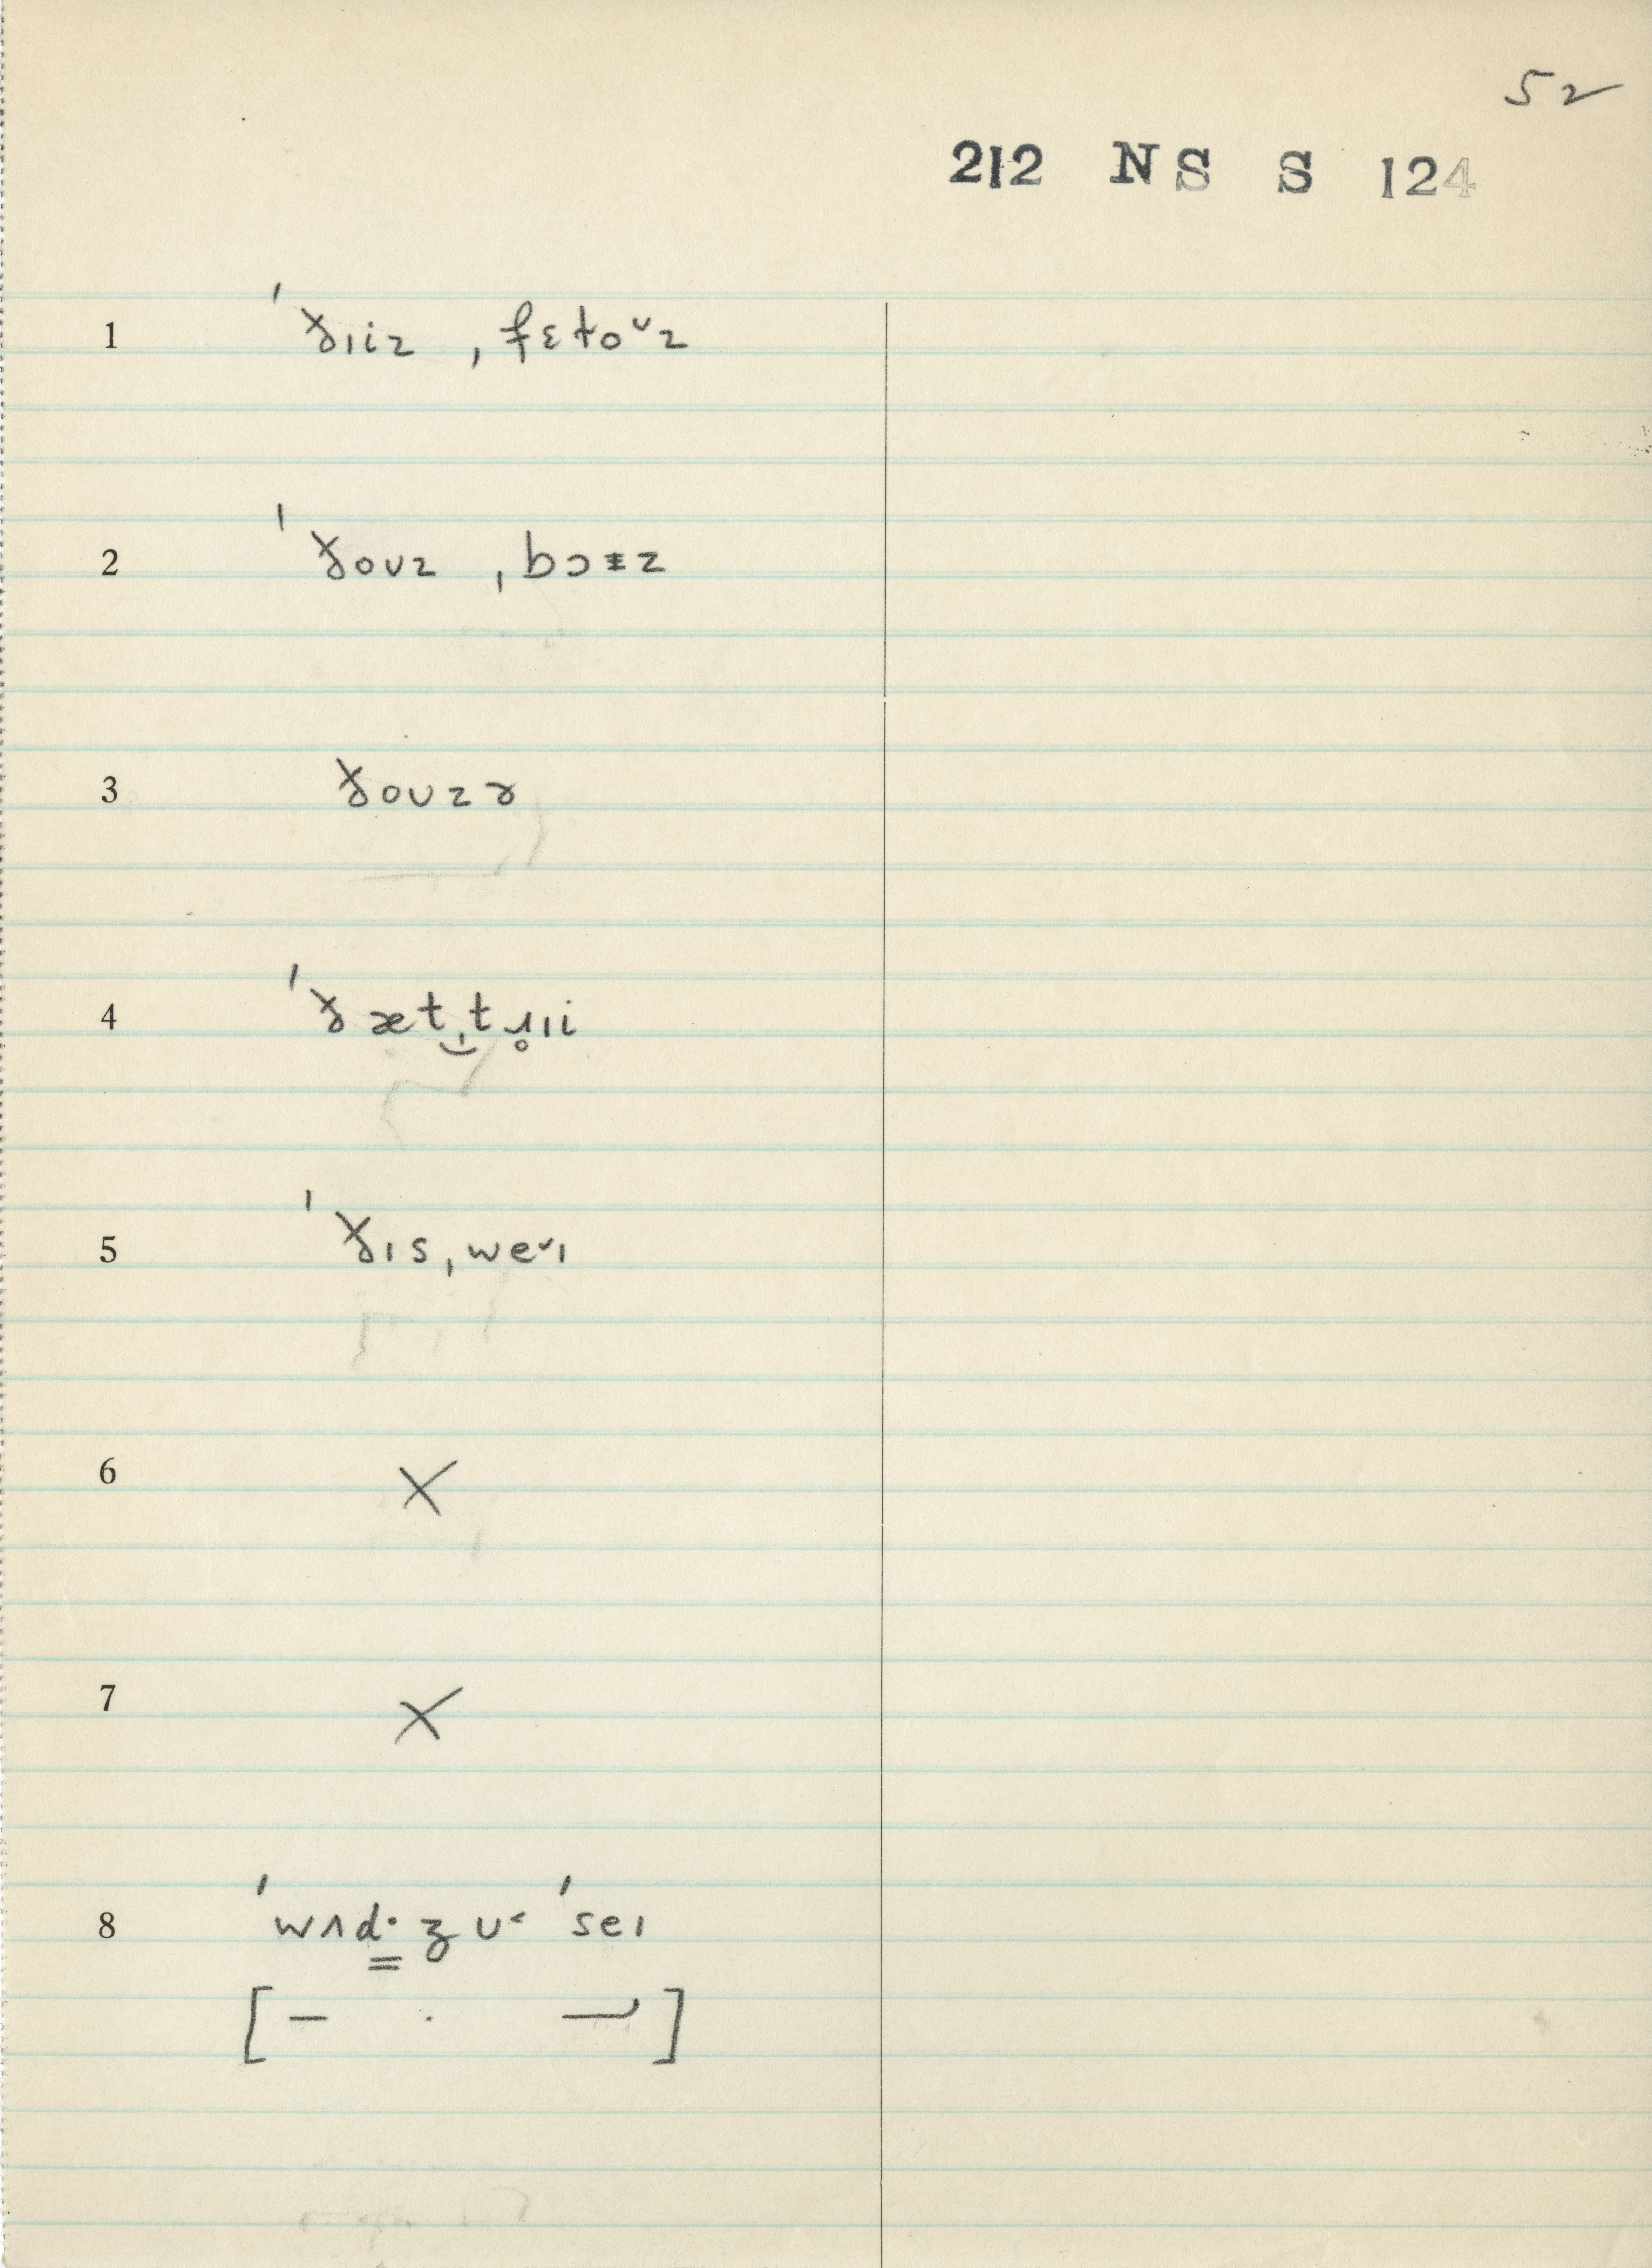 52
212 NS S 124
1 ˈðɪiz ˌfɛtoᵛz
2 ˈðoʊz ˌbɔɪz
3 ðoʊzɚ
4 ˈðæt ̮t ɹ̥ɪi
5 ˈðɪs ˌweᵛɪ
6 X
7 X
8 ˈwʌd̳· ʒ ʊ˂ ˈseɪ
[ – · ⟶ ]